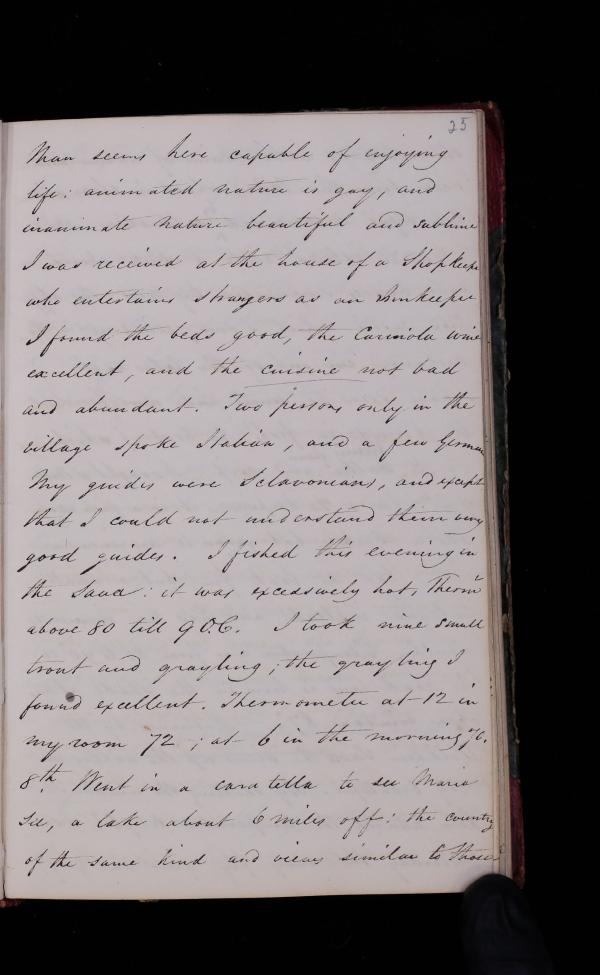 25
Man seems here capable of enjoying
life: animated nature is gay, and
inanimate nature beautiful and sublime
I was received at the house of a Shopkeeper
who entertains strangers as an Innkeeper
I found the beds good, the Carniola wine
excellent, and the cuisine not bad
and abundant. Two persons only in the
village spoke Italian, and a few German
My guides were Sclavonians, and except
that I could not understand them very
good guides. I fished this evening in
the Sava: it was excessively hot, Therm
above 80 till 9 O.C. I took nine small
trout and grayling; the grayling I
found excellent. Thermometer at 12 in
my room 72; at 6 in the morning 76.
8th. Went in a caratella to see Maria
See, a lake about 6 miles off: the country
of the same kind and views similar to those